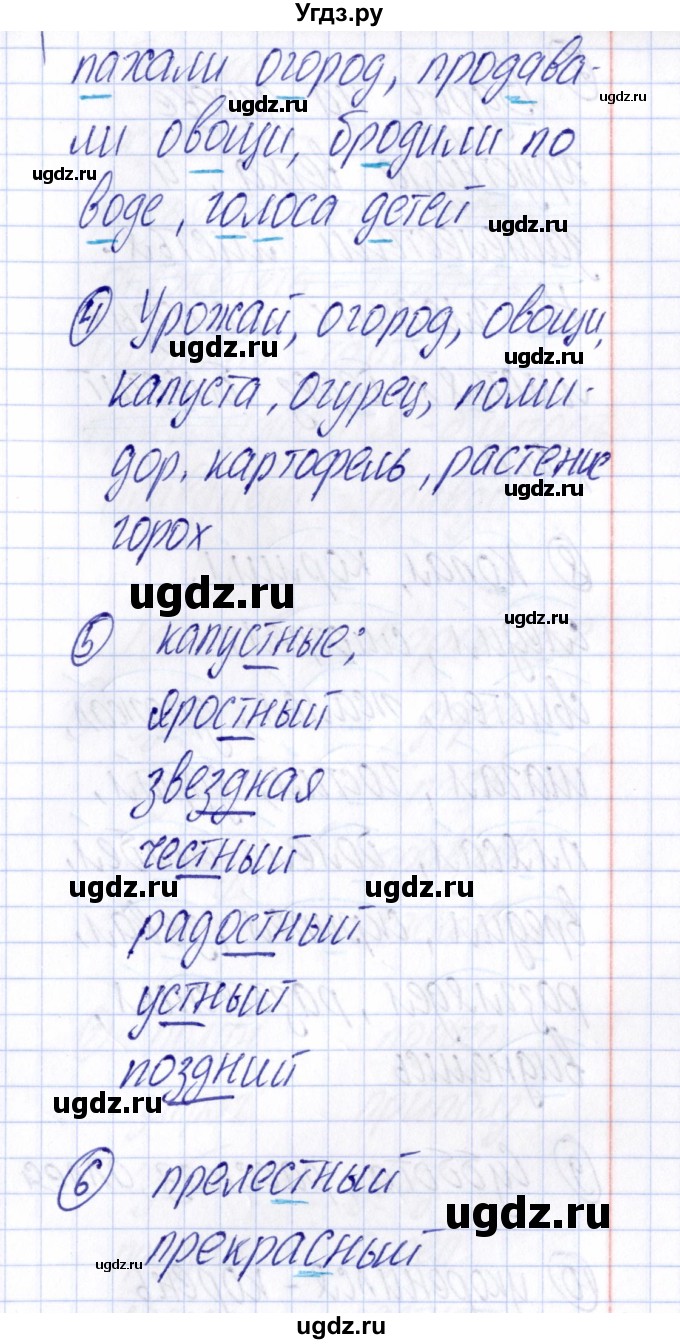 Угдз.ру
пахали огород, продава-
ugdz.ru ugdz.ru
ли овощи, бродили по
ugdz.ru
воде, голоса детей
ugdz.ru
4 Урожай, огород, овощи,
ugdz.ru ugdz.ru
капуста, огурец, поми-
дор, картофель, растение
ugdz.ru
горох
ugdz.ru ugdz.ru
5 капустные;
яростный
звездная
честный
ugdz.ru ugdz.ru
радостный
устный
поздний
ugdz.ru
6 прелестный
ugdz.ru
прекрасный
ugdz.ru
ugdz.ru